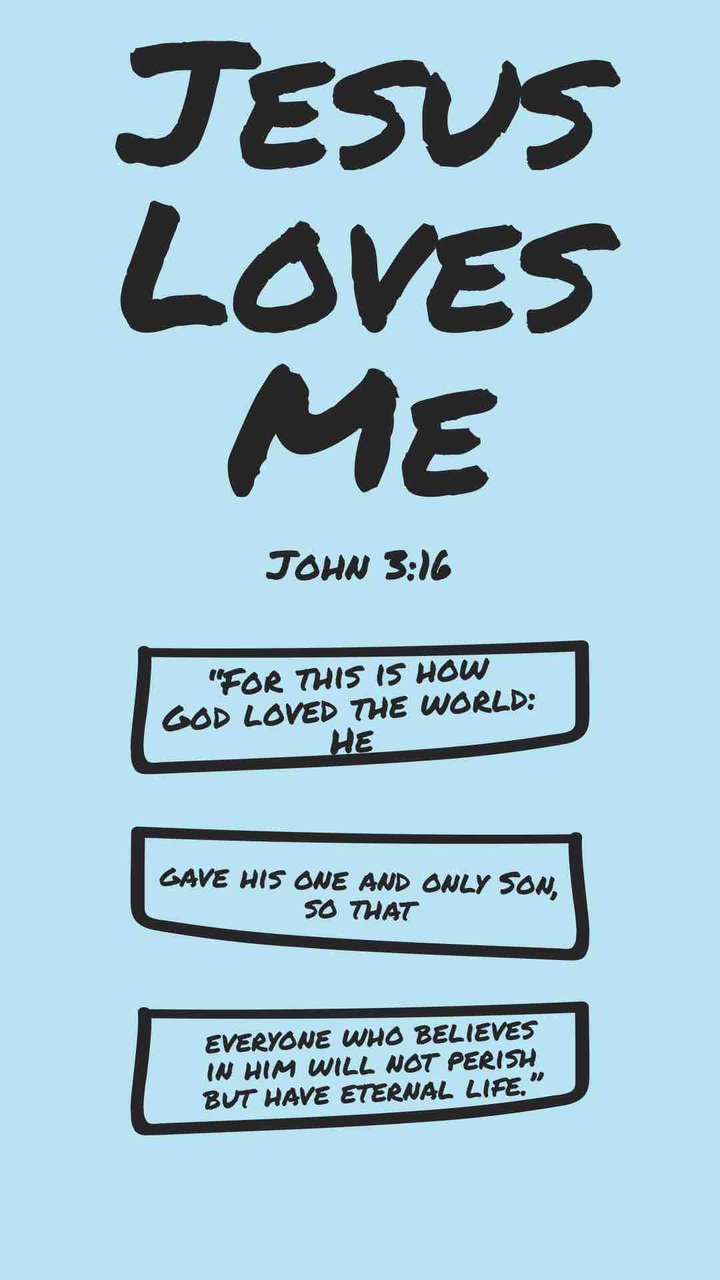 Jesus
Loves
Me
John 3:16
"For this is how
God loved the world:
He
gave his one and only Son,
so that
everyone who believes
in him will not perish
but have eternal life.”